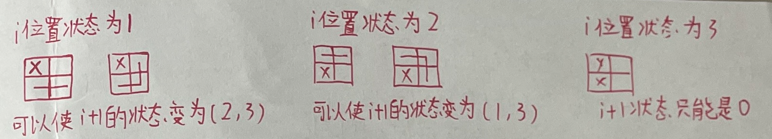 i位置状态为1
i位置状态为2
i位置状态为3
X
X
X
X
X
X
可以使i+1的状态变为(2,3)
可以使i+1的状态变为(1,3)
i+1状态只能是0